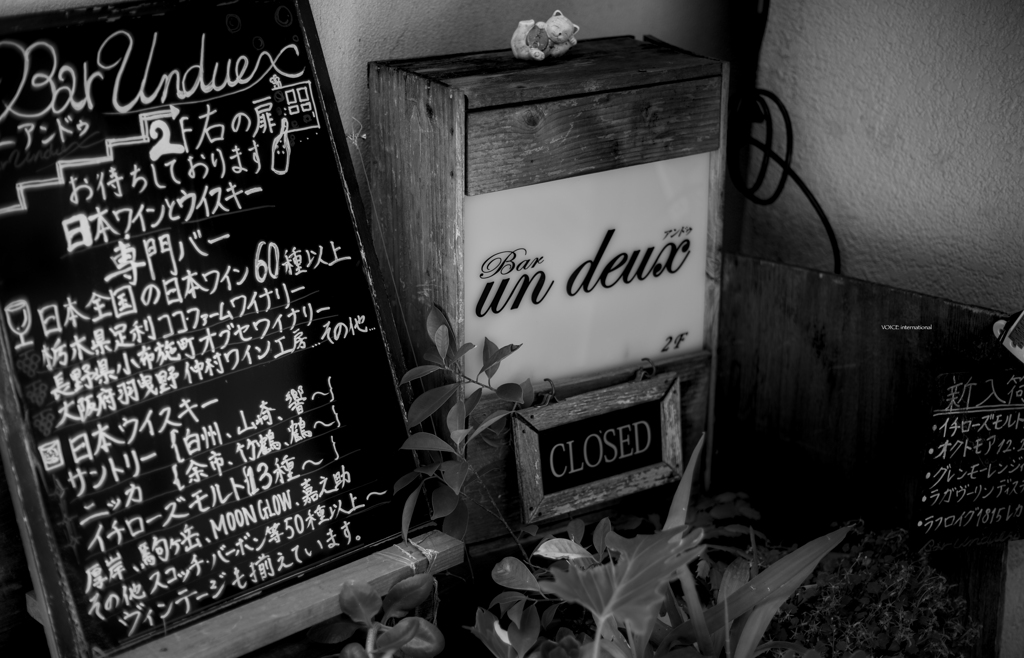 Bar Unduex
アンドゥ
2F右の扉
お待ちしております
日本ワインとウイスキー
専門バー
日本全国の日本ワイン60種以上
栃木県足利ココファームワイナリー
長野県小布施町オブセワイナリー
大阪府羽曳野仲村ワイン工房…その他…
日本ウイスキー
サントリー{白州、山崎、響~}
ニッカ{余市、竹鶴、鶴~}
イチローズモルト13種~
厚岸、駒ヶ岳、MOON GLOW、嘉之助
その他スコッチ・バーボン等50種以上~
ヴィンテージも揃えています。
Bar
アンドゥ
un deux
2F
CLOSED
VOICE international
新入荷
・イチローズモルト
・オクトモア12.
・グレンモーレンジ
・ラガヴーリン ディス
・ラフロイグ1815レガ